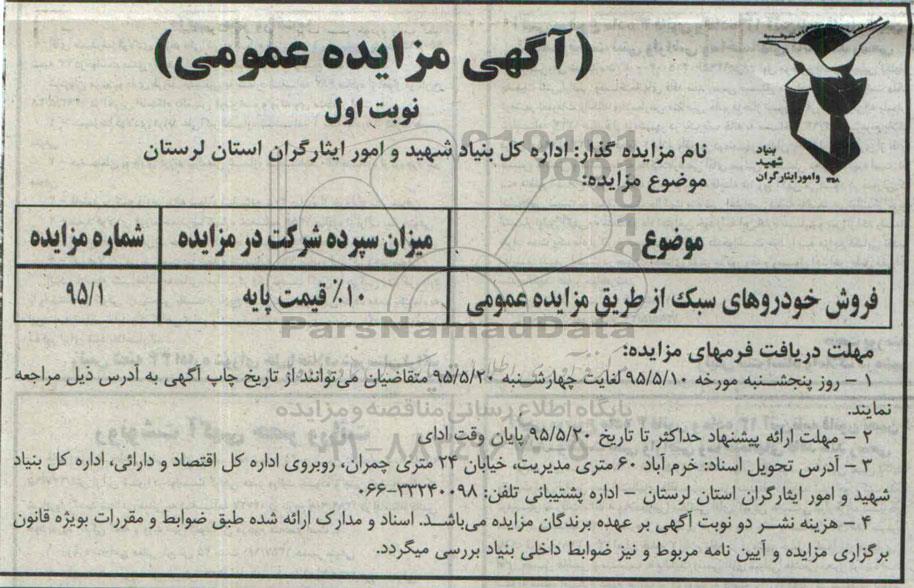 (آگهی مزایده عمومی)
نوبت اول
بنیاد
شهید
وامور ایثارگران
نام مزایده گذار: اداره کل بنیاد شهید و امور ایثارگران استان لرستان
موضوع مزایده:
موضوع میزان سپرده شرکت در مزایده شماره مزایده
فروش خودروهای سبک از طریق مزایده عمومی ۱۰٪ قیمت پایه ۹۵/۱
ParsNamadData
پایگاه اطلاع رسانی مناقصه و مزایده
مهلت دریافت فرمهای مزایده:
۱ – روز پنجشنبه مورخه ۹۵/۵/۱۰ لغایت چهارشنبه ۹۵/۵/۲۰ متقاضیان می‌توانند از تاریخ چاپ آگهی به آدرس ذیل مراجعه
نمایند.
۲ – مهلت ارائه پیشنهاد حداکثر تا تاریخ ۹۵/۵/۲۰ پایان وقت ادای
۳ – آدرس تحویل اسناد: خرم آباد ۶۰ متری مدیریت، خیابان ۲۴ متری چمران، روبروی اداره کل اقتصاد و دارائی، اداره کل بنیاد
شهید و امور ایثارگران استان لرستان – اداره پشتیبانی تلفن: ۳۳۲۴۰۰۹۸-۰۶۶
۴ – هزینه نشر دو نوبت آگهی بر عهده برندگان مزایده می‌باشد. اسناد و مدارک ارائه شده طبق ضوابط و مقررات بویژه قانون
برگزاری مزایده و آیین نامه مربوط و نیز ضوابط داخلی بنیاد بررسی میگردد.